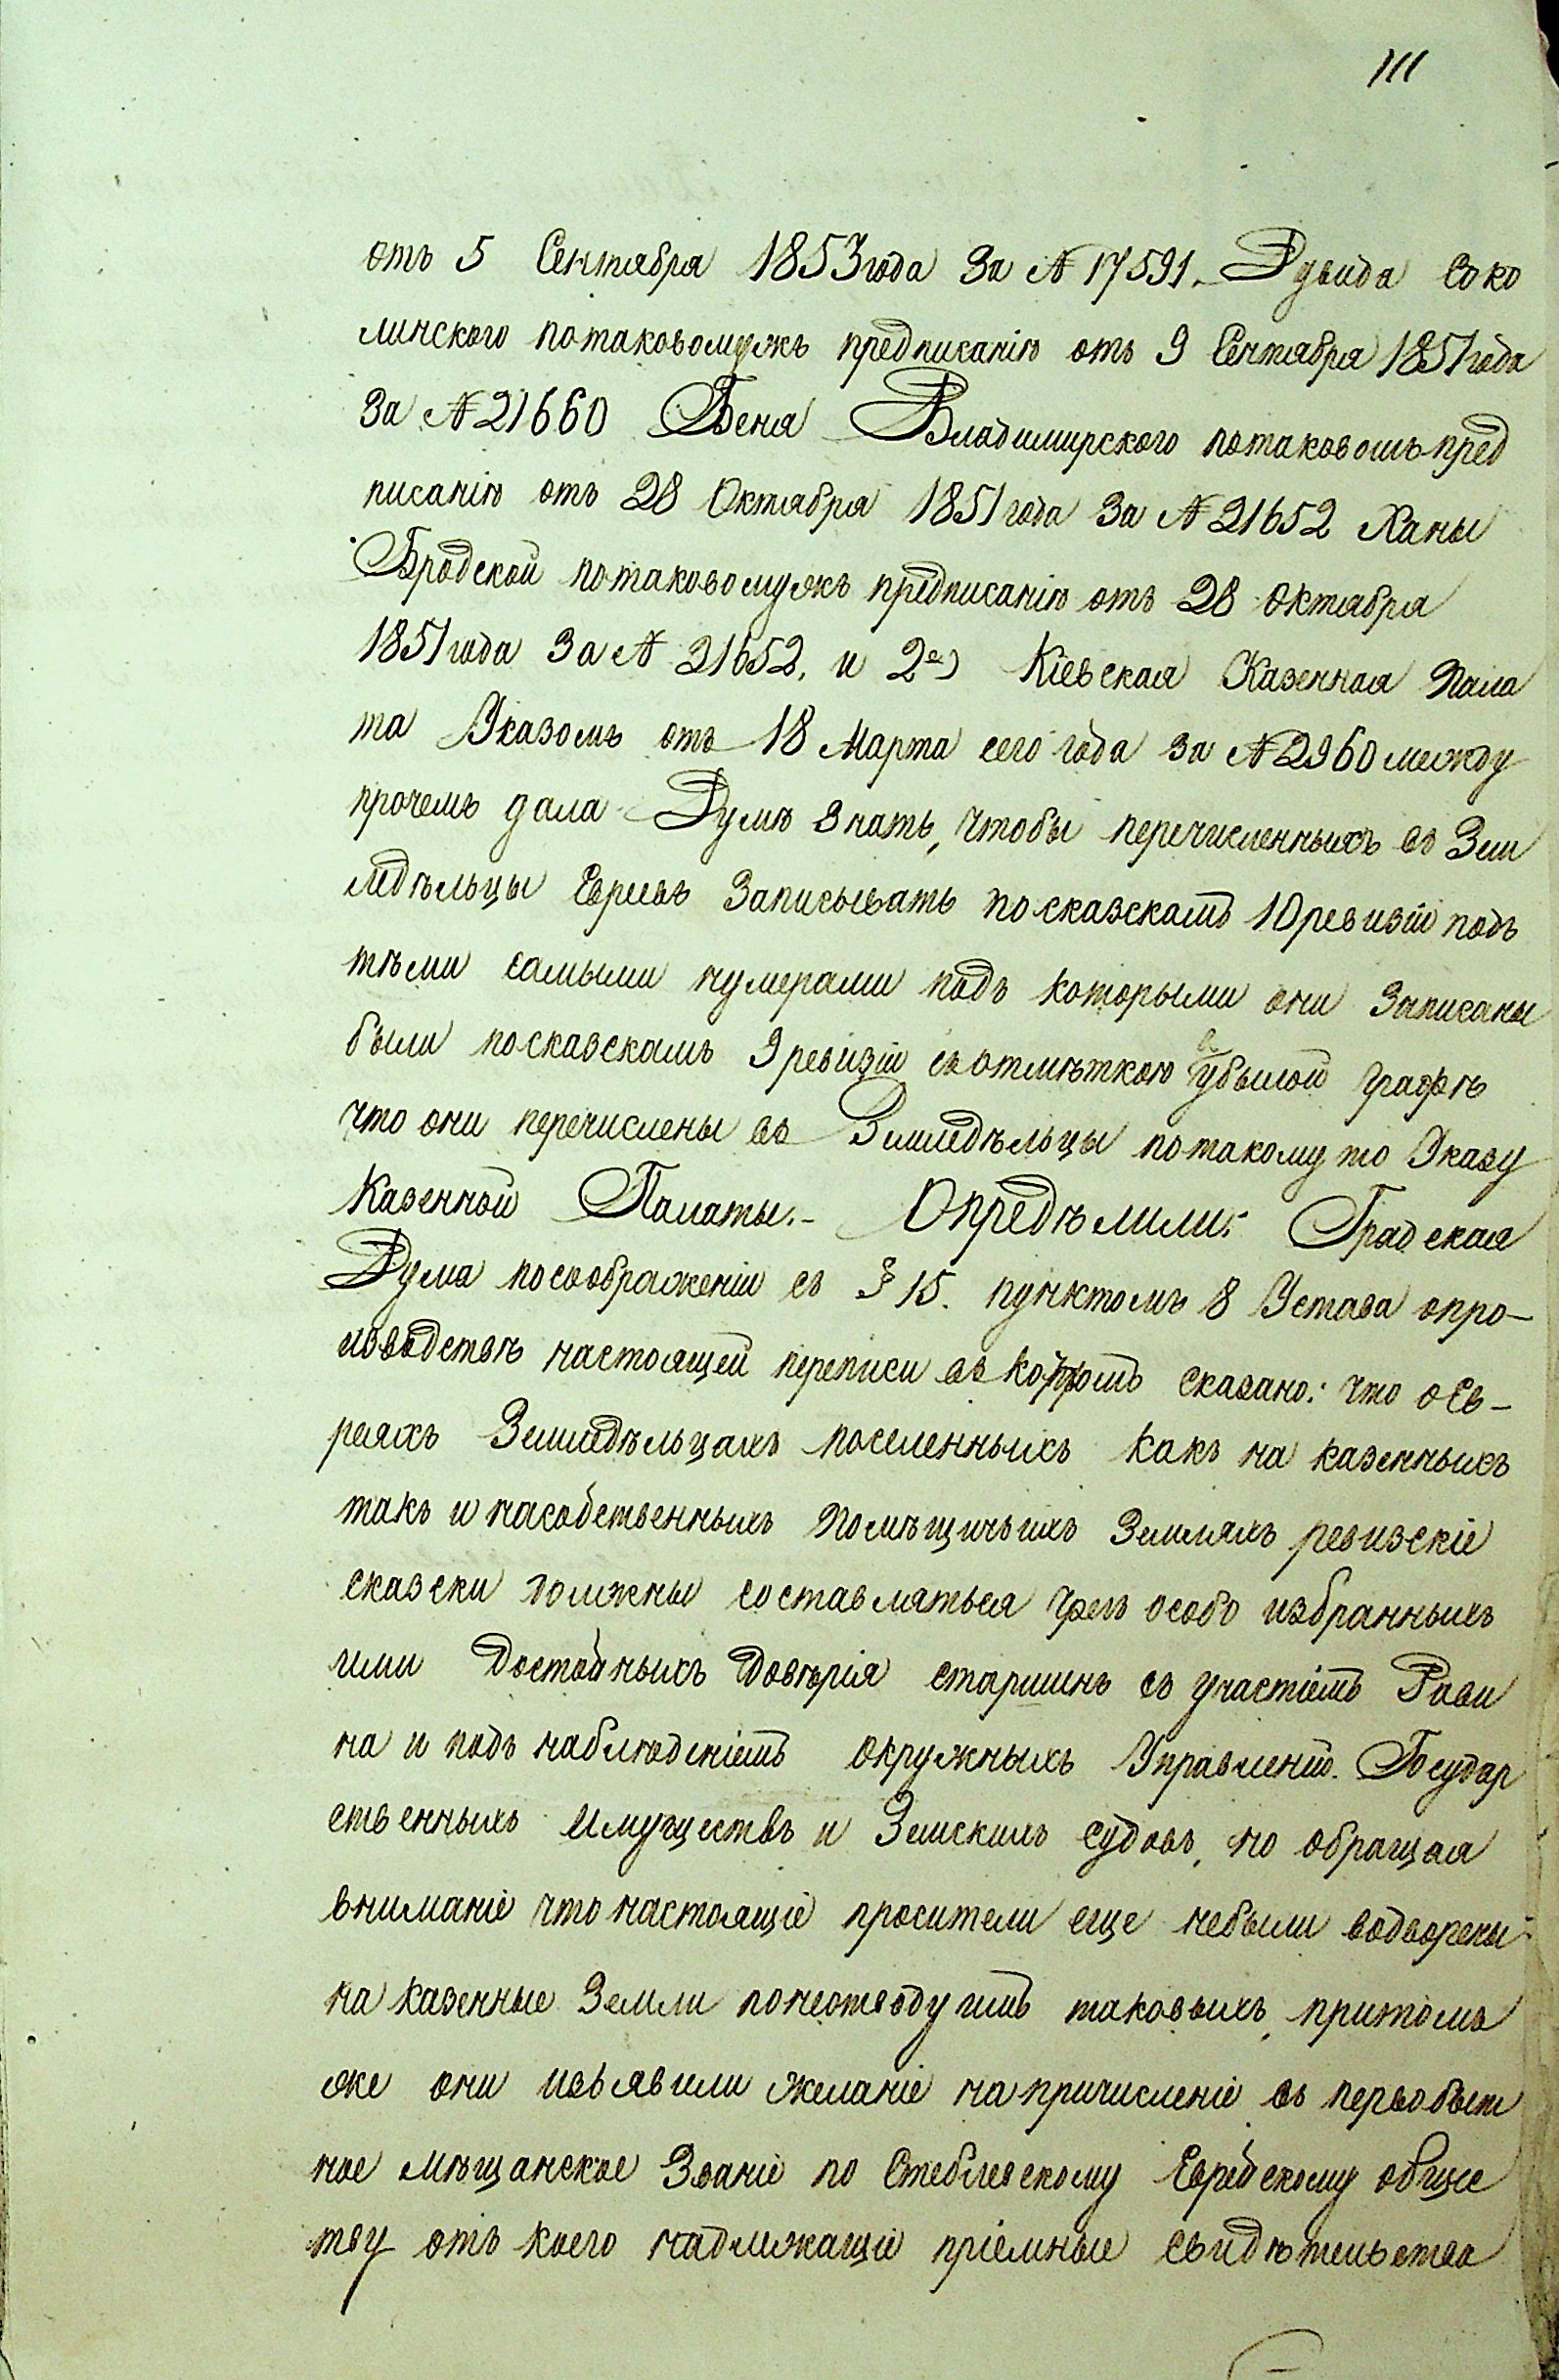 111
отъ 5 Сентября 1853 года За № 17591. Дувида Соко
линского потаковомужъ предписанію отъ 9 Сентября 1851 года
За № 21660 Беня Владимирского потаковомъ пред
писанію отъ 28 Октября 1851 года За № 21652 Ханы
Бродской потаковомужъ предписанію отъ 28 Октября
1851 года За № 21652. и 2е) Кіевская Казенная Пала
та Указомъ отъ 18 Марта сего года за № 2960 между
прочемъ дала Думѣ знать, чтобы перечисленныхъ въ Зем
ледѣльцы Евреевъ Записывать посказскамъ 10 ревизіи подъ
тѣми самыми нумерами подъ которыми они Записаны
были посказскамъ 9 ревизіи съ отмѣткою въ убылой графѣ
что они перечислены въ Земледѣльцы потакому то Указу
Казенной Палаты.- Опредѣлили: Градская
Дума посоображеніи съ § 15. пунктомъ 8 Устава опро-
изводствѣ настоящей переписи въ которомъ сказано: что о Ев-
реяхъ Земледѣльцахъ поселенныхъ какъ на казенныхъ
такъ и насобственныхъ Помѣщичьихъ Земляхъ ревизскіе
сказски должны составляться чрезъ особо избранныхъ
ими Достойныхъ Довѣрія старшинъ съ участіемъ Рави
на и подъ наблюденіемъ окружныхъ Управленій Государ
ственныхъ Имуществъ и Земскихъ судовъ, но обращая
вниманіе что настоящіе просители еще небыли водворены
на казенные Земли понеотводу имъ таковыхъ, притомъ
же они изъявили желаніе на причисленіе въ первобыт
ное мѣщанское Званіе по Стеблевскому Еврейскому обще
тву отъ коего надлежащіе пріемные свидѣтельства